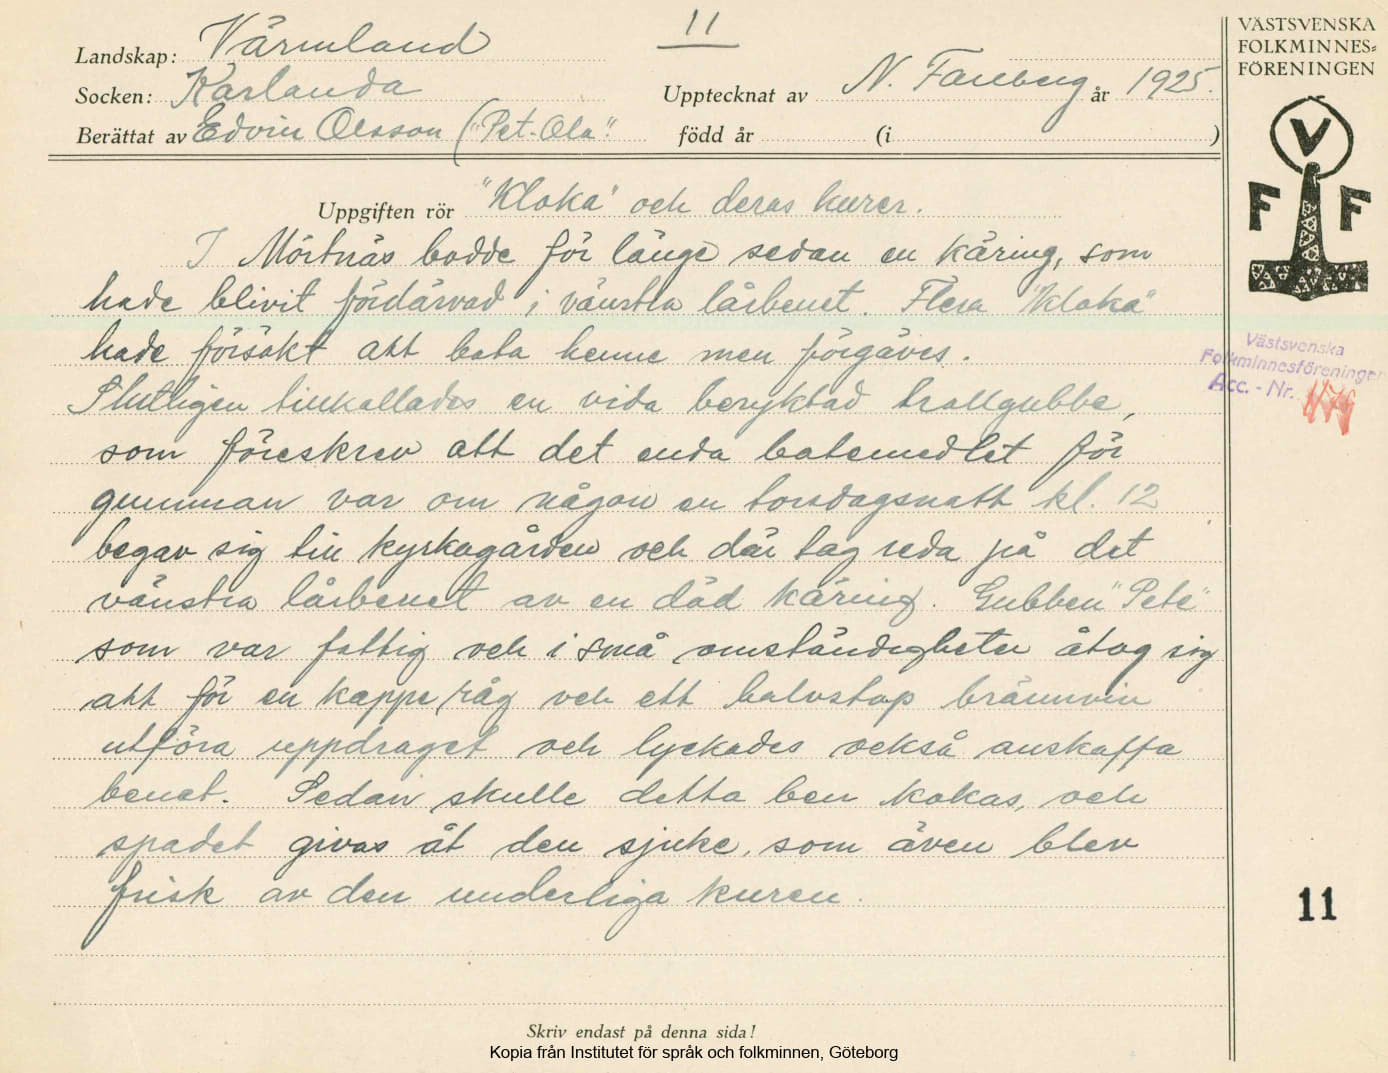 11
Landskap: Värmland
Socken: Karlanda
Upptecknat av N. Fanberg år 1925.
Berättat av Edvin Olsson ("Pet-Ola".
född år (i )
Uppgiften rör "Kloka" och deras kurer.
I Mörtnäs bodde för länge sedan en käring, som
hade blivit fördärvad i vänstra lårbenet. Flera "kloka"
hade försökt att bota henne men förgäves.
Slutligen tillkallades en vida beryktad trollgubbe,
som föreskrev att det enda botemedlet för
gumman var om någon en torsdagsnatt kl. 12
begav sig till kyrkogården och där tog reda på det
vänstra lårbenet av en död käring. Gubben "Pete"
som var fattig och i små omständigheter åtog sig
att för en kappe råg och ett halvstop brännvin
utföra uppdraget och lyckades också anskaffa
benet. Sedan skulle detta ben kokas, och
spadet givas åt den sjuke, som även blev
frisk av den underliga kuren.
Skriv endast på denna sida!
Kopia från Institutet för språk och folkminnen, Göteborg
VÄSTSVENSKA
FOLKMINNES-
FÖRENINGEN
V
F F
Västsvenska
Folkminnesföreningen
Acc. - Nr.
11